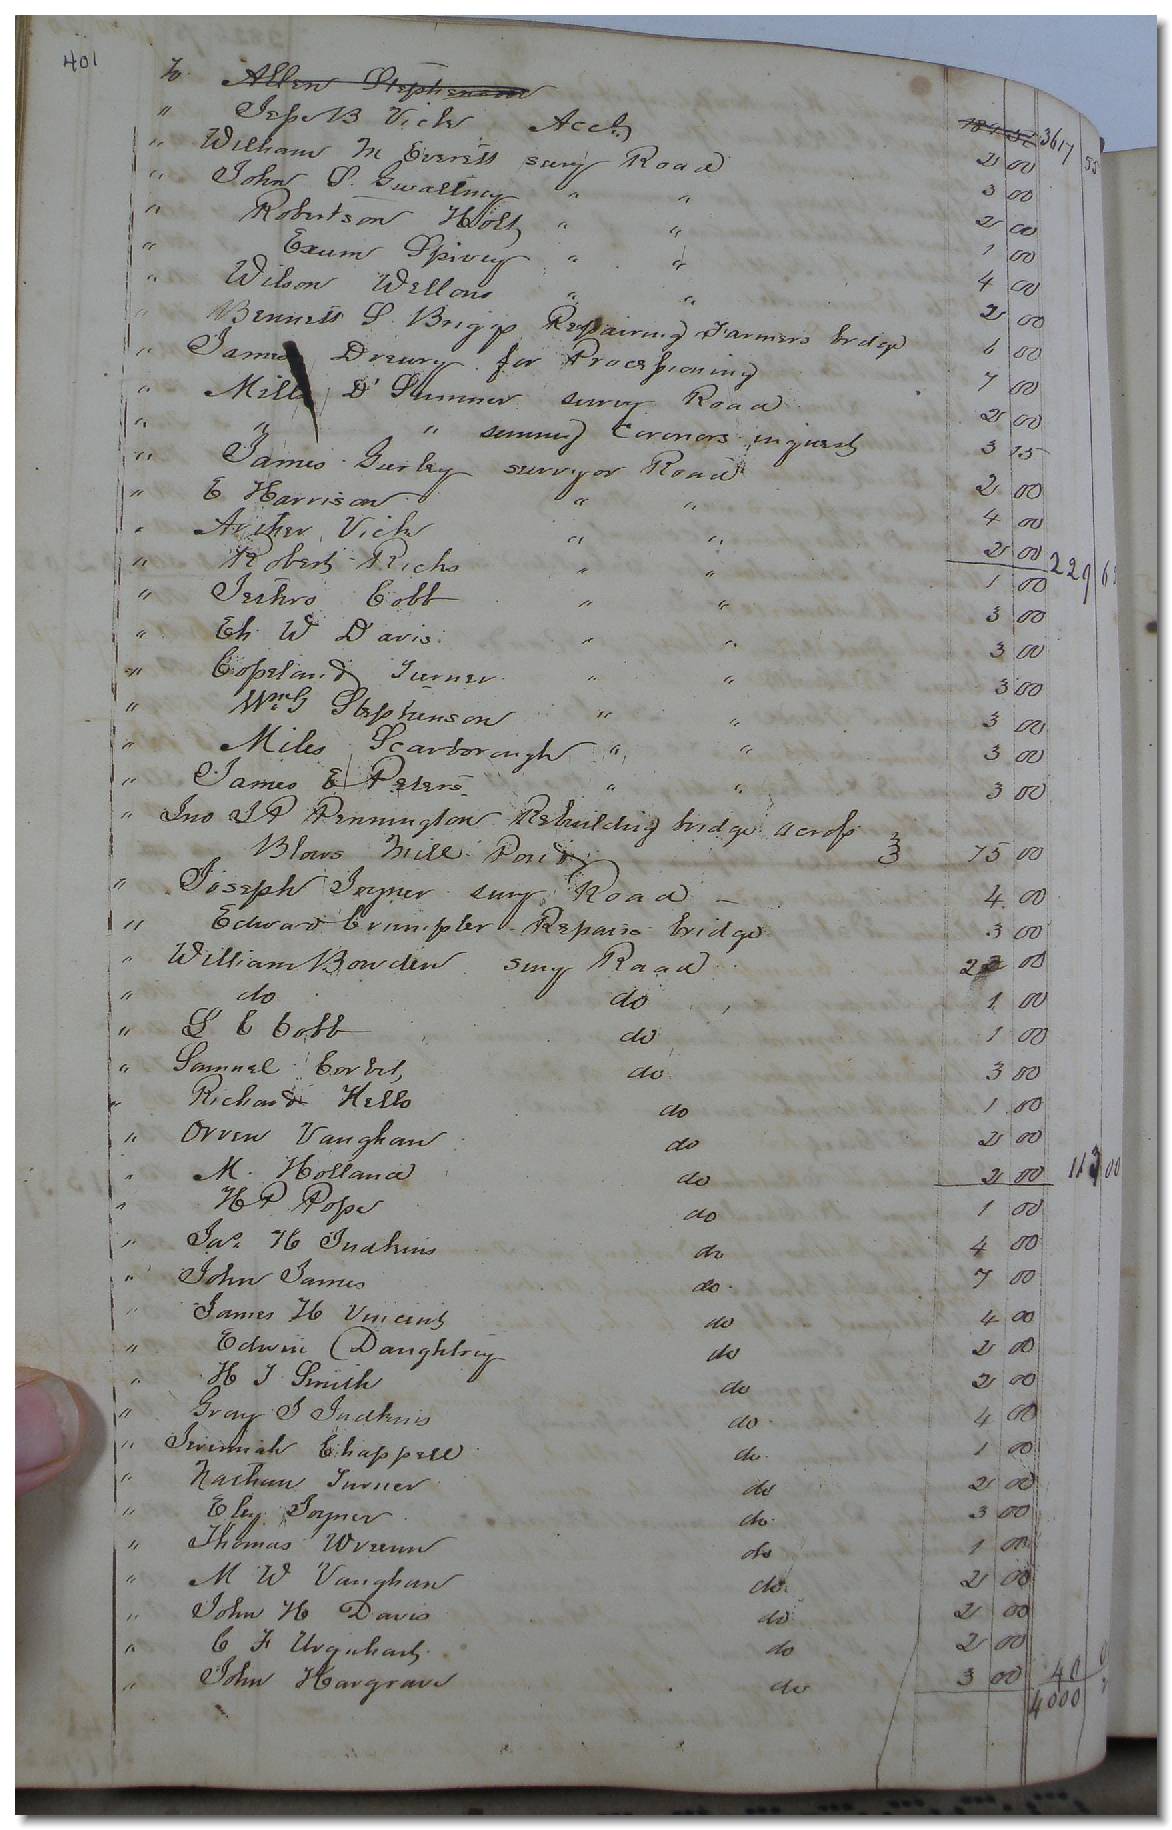 401
To Allen Stephenson 184 52 3617 55
" Jep B Vick Acct 2 00
" William M Everett survy Road 3 00
" John S. Gwaltney " " 2 00
" Robertson Holt " " 1 00
" Exum Spivey " " 4 00
" Wilson Wellons " " 2 00
" Bennett S. Briggs Repairing Farmers bridge 6 00
" James Drewry for Processioning 7 00
" Mills D Sumner survy Road 2 00
" " " summg Coroners inquest 3 15
" James Gurley surveyor Road 2 00
" E Harrison " " 4 00
" Archer Vick " " 2 00 229 6
" Robert Ricks " " 1 00
" Jethro Cobb " " 3 00
" Eli W Davis " " 3 00
" Copeland Turner " " 3 00
" Wm G Stephenson " " 3 00
" Miles Scarborough " " 3 00
" James E Peters " " 3 00
" Jno J P Pennington Rebuilding bridge across
Blows Mill Pond 75 00
" Joseph Joyner survy Road 4 00
" Edward Crumpler Repairs bridge 3 00
" William Bowden survy Road 2 00
" do do 1 00
" L C Cobb do 1 00
" Samuel Corbet do 3 00
" Richard Kello do 1 00
" Orren Vaughan do 2 00
" M. Holland do 2 00 113 00
" H P Pope do 1 00
" Jas H Judkins do 4 00
" John James do 7 00
" James H Vincent do 4 00
" Edwin Daughtrey do 2 00
" H J Smith do 2 00
" Gray J Judkins do 4 00
" Jeremiah Chappell do 1 00
" Nathan Turner do 2 00
" Eley Joyner do 3 00
" Thomas Wrenn do 1 00
" M W Vaughan do 2 00
" John H Davis do 2 00
" C F Urquhart do 2 00
" John Hargrave do 3 00 40
4000